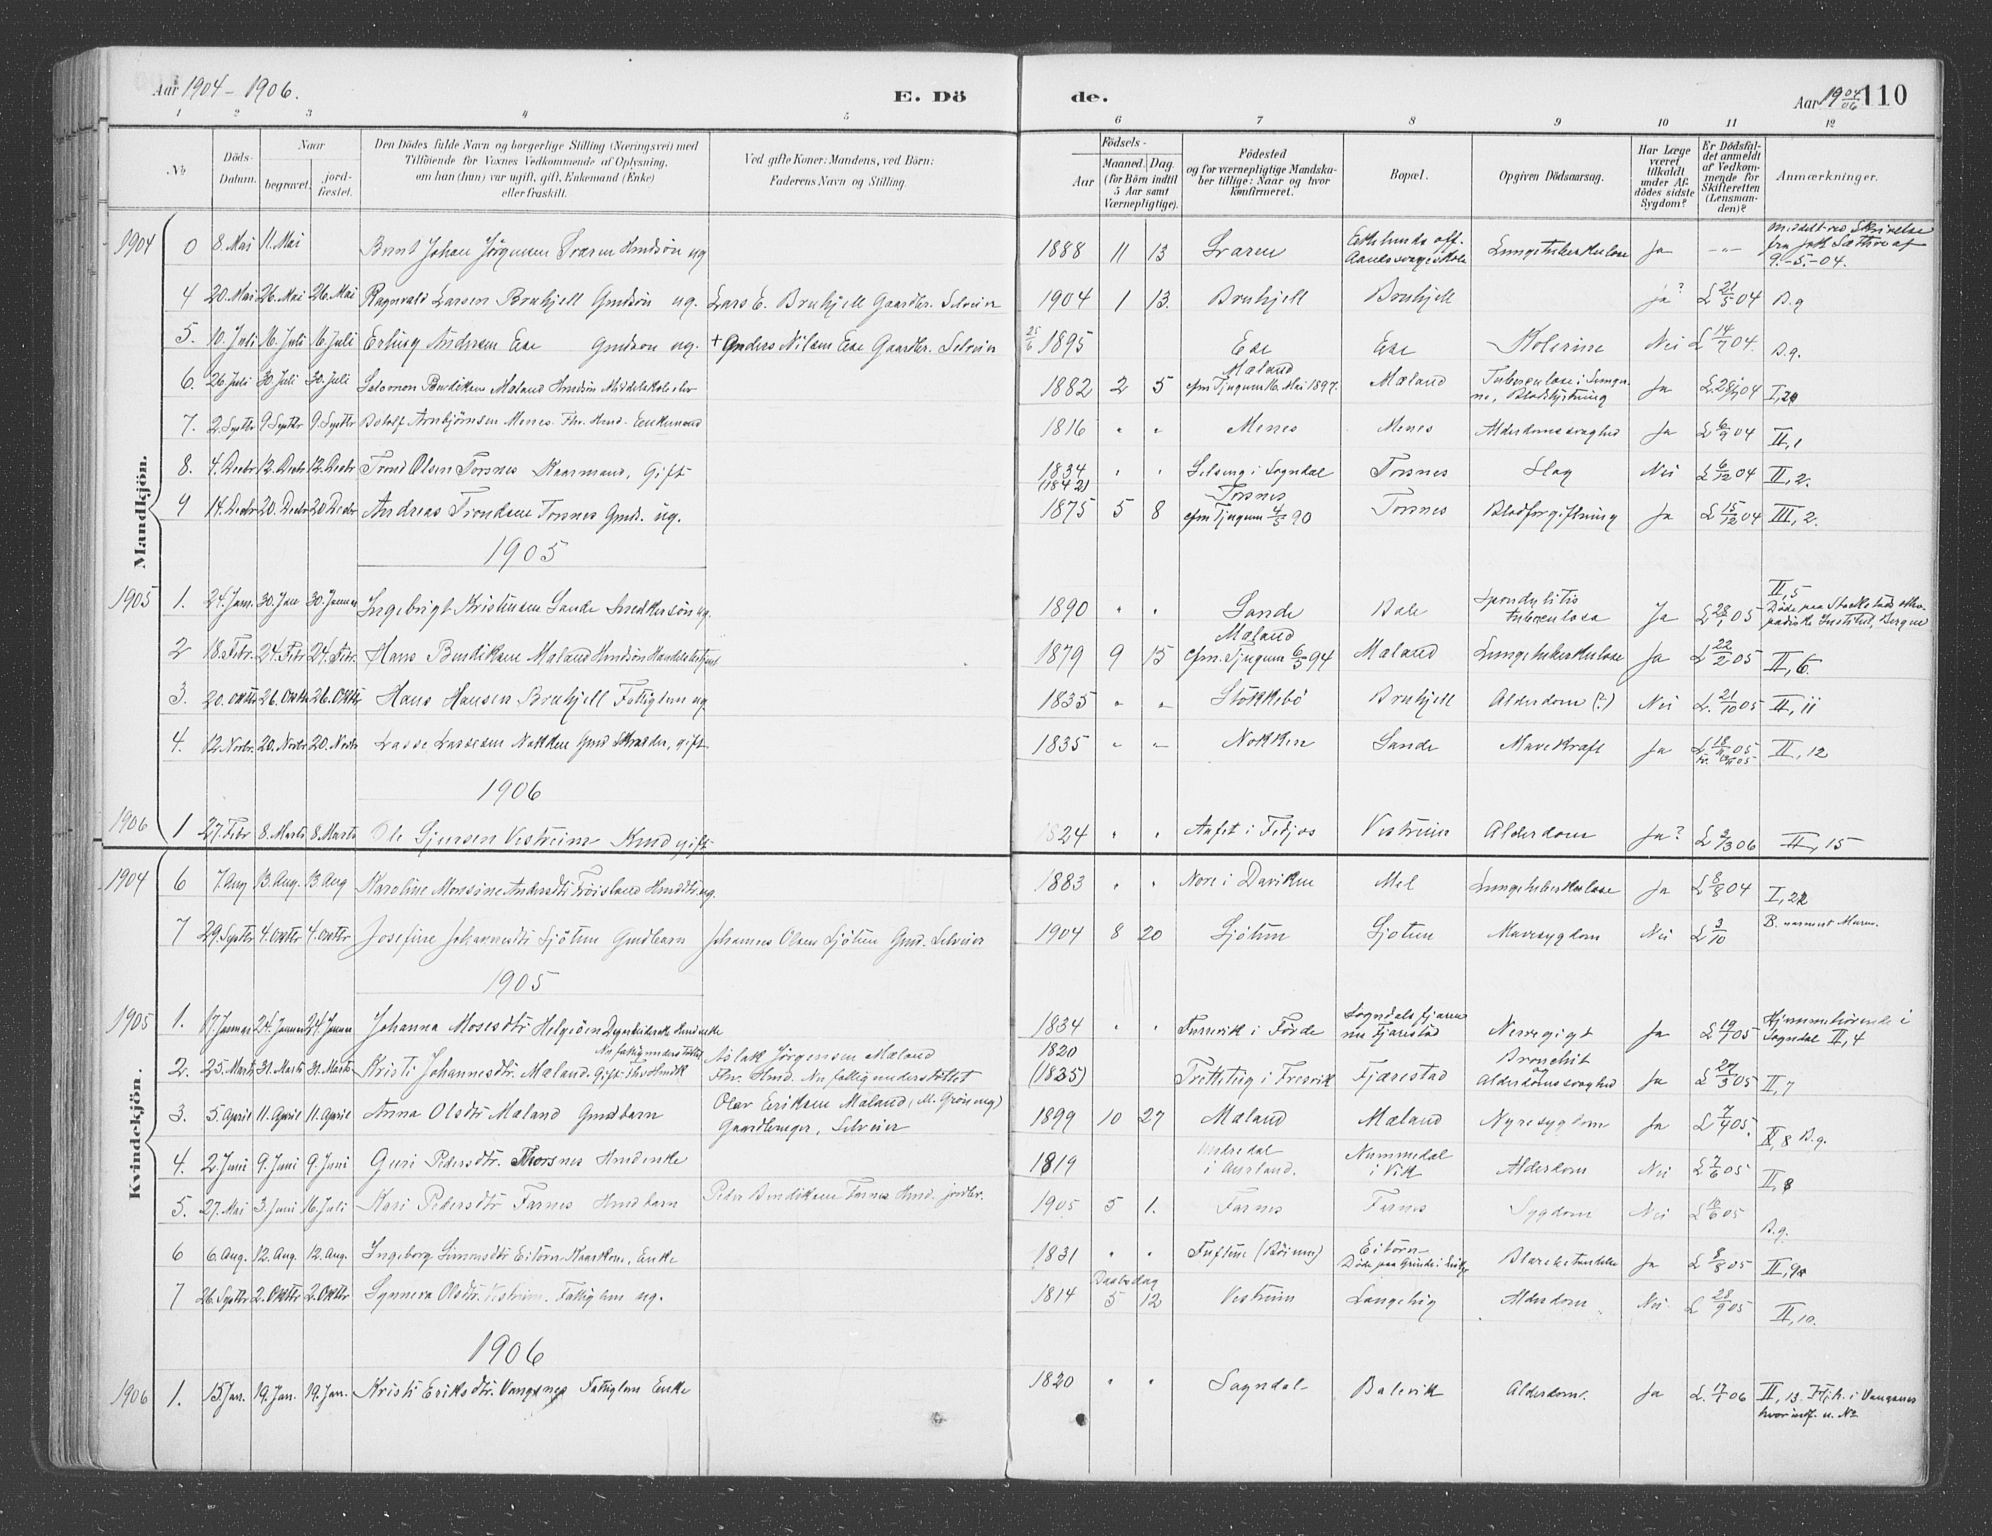 Aar 1904 - 1906. E. Dö de. Aar 19 04/06 110
1 2 3 4 5 6 7 8 9 10 11 12
No Döds-Datum. Naar begravet. jord-fæstet. Den Dödes fulde Navn og borgerlige Stilling (Næringsvei) med Tilföiende for Voxnes Vedkommende af Oplysning, om han (hun) var ugift, gift, Enkemand (Enke) eller fraskilt. Ved gifte Koner: Mandens, ved Börn: Faderens Navn og Stilling. Födsels- Aar Maaned. Dag. (for Börn indtil 5 Aar samt Værnepligtige). Födested og for værnepligtige Mandskaber tillige: Naar og hvor konfirmeret. Bopæl. Opgiven Dödsaarsag. Har Læge været tilkaldt under Afdödes sidste Sygdom? Er Dödsfaldet anmeldt af Vedkommende for Skifteretten (Lensmanden)? Anmærkninger.
Mandkjön.
1904 0 8. Mai 11. Mai Bernt Johan Jörgensen Svaren Hmdsön ug 1888 11 13 Svaren Lungetuberkulose Ja -"- Meddelt ved Skrivelse fra 9.-5.-04.
4 20. Mai 26. Mai 26. Mai Ragnvald Larsen Bruhjell Gmdsön ug. Lars E. Bruhjell Gaardbr. Selveier 1904 1 13. Bruhjell Bruhjell ja? L 21/5 04 B.g
5. 10. Juli 16. Juli 16. Juli Erling Andersen Ese Gmdson ug. + Anders Nilsen Ese Gaardbr. Selveier 25/6 1895 Ese Ese Kolerine Nei L 14/7 04. B.g.
6. 26 Juli 30. Juli 30. Juli Salomon Bendiksen Mæland Hmdsön Middelskoleelev 1882 2 5 Mæland cfm Tjugum 16. Mai 1897. Mæland Tuberculose i Lungerne, Blodstyrtning Ja L. 28/7 04 I,20
7. 2. Septbr 9 Septbr 9. Septbr Botolf Arnbjörnsen Menes Fhv. Hmd. Enkemand 1816 " " Menes Menes Alderdomssvaghed Ja L 6/9 04 II, 1
8. 4. Decbr 12. Decbr 12. Decbr Trond Olsen Torsnes Kaarmand, Gift 1834 (1842) " " Selseng i Sogndal Torsnes Slag Nei L 6/12 04 II, 2.
9 14. Decbr 20. Decbr 20 Decbr Andreas Trondsen Torsnes Gmds. ug. 1875 5 8 Torsnes cfm Tjugum 4/5 90 Torsnes Blodforgiftning Ja L 15/12 04 III, 2.
1905
1905 1. 24. Jan. 30. Jan 30. Januar Ingebrigt Kristensen Sande Snedkersön ug. 1890 " " Sande Bale Spondylitis tuberculosa Ja L 28/1 05 II, 5 Döde paa Institut, Bergen
2 18. Febr. 24. Febr 24. Febr. Hans Bendiksen Mæland Hmdsön Handelsbetjent 1879 9 15 Mæland Cfm. Tjugum 6/5 94 Mæland Lungetuberkulose Ja L 22/2 05 II, 6.
3. 20. Oktbr 26. Oktbr 26. Oktbr Hans Hansen Bruhjell Fattiglem ug. 1835 " " Stokkebö Bruhjell Alderdom (?) Nei L. 21/10 05 II, 11
4. 12 Novbr. 20. Novbr 20. Novbr Lasse Lassesen Nokken Gmd Skrædder, gift 1835 " " Nokken Sande Mavekraft Ja L. 18/11 05 II, 12
1906
1906 1 27. Febr 8. Marts 8. Marts Ole Sjursen Vestreim Kmd gift 1824 " " Aafet i Fedjos Vestreim Alderdom Ja? L 2/3 06 II, 15
Kvindekjön.
1904 6 7. Aug 13. Aug. 13 Aug Karoline Monsine Andersdtr Fröisland Hmddtr ug. 1883 " " Nore i Daviken Mel Lungetuberkulose Ja L 8/8 04 I, 22
7 29. Septbr 4. Oktbr 4. Oktbr Josefine Johannesdtr Sjötun Gmdbarn Johannes Olsen Sjötun Gmd. Selveier 1904 8 20 Sjötun Sjotun Mavesygdom Nei L 3/10
1905
1905 1. 17. Januar 24. Januar 24. Januar Johanna Mosesdtr Helgöen 1834 " " Furevik i Förde Nervegigt Ja L 19/1 05 Hjemmehörende i Sogndal II, 4
2. 25. Marts 31. Marts 31. Marts Kristi Johannesdtr. Mæland. Gift. Fhv Hmdk Nu fattigunderstöttet Aslak Jörgensen Mæland Fhv. Hmd. Nu fattigunderstöttet 1820 (1825) Tretteteig i Fresvik Fjærestad Bronchit og Alderdomssvaghed Ja L 27/3 05 II, 7
3. 5. April 11. April 11. April Anna Olsdtr Mæland Gmdbarn Olav Eriksen Mæland, (M. Gröneng) Gaardbruger, Selveier 1899 10 27 Mæland Mæland Nyresygdom Ja L 7/4 05. II, 8 B.g.
4. 2. Juni 9. Juni 9. Juni Guri Pedersdtr. Thorsnes Hmdenke 1819 Undredal i Aurland. Nummedal i Vik Alderdom Nei L 7/6 05 II, 8
5. 27. Mai 3. Juni 16. Juli Kari Pedersdtr Farnes Hmdbarn Peder Bendiksen Farnes Hmd. jordbr. 1905 5 1. Farnes Farnes Sygdom Nei L 12/6 05 B.g.
6 6. Aug. 12. Aug. 12. Aug. Ingeborg Simensdtr Eitorn Kaarkone, Enke 1831 " " Tuftene (Böieum) Eitorn Döde paa Grinde i Leik. Blærebetændelse Ja L 8/8 05 II, 9
7 26. Septbr 2. Oktbr 2. Oktbr Synneva Olsdtr. Vestreim. Fattiglem ug. 1814 Daabsdag 5 12 Vestreim Langeteig Alderdom Nei L 28/9 05 II, 10.
1906
1906 1. 15. Jan. 19. Jan. 19. Jan. Kristi Eriksdtr. Vangsnes Fattiglem Enke 1820 " " Sogndal Balevik Alderdom. Ja L. 17/1 06 II, 13. Fljh. i Vangsnes hvor indf. u. No